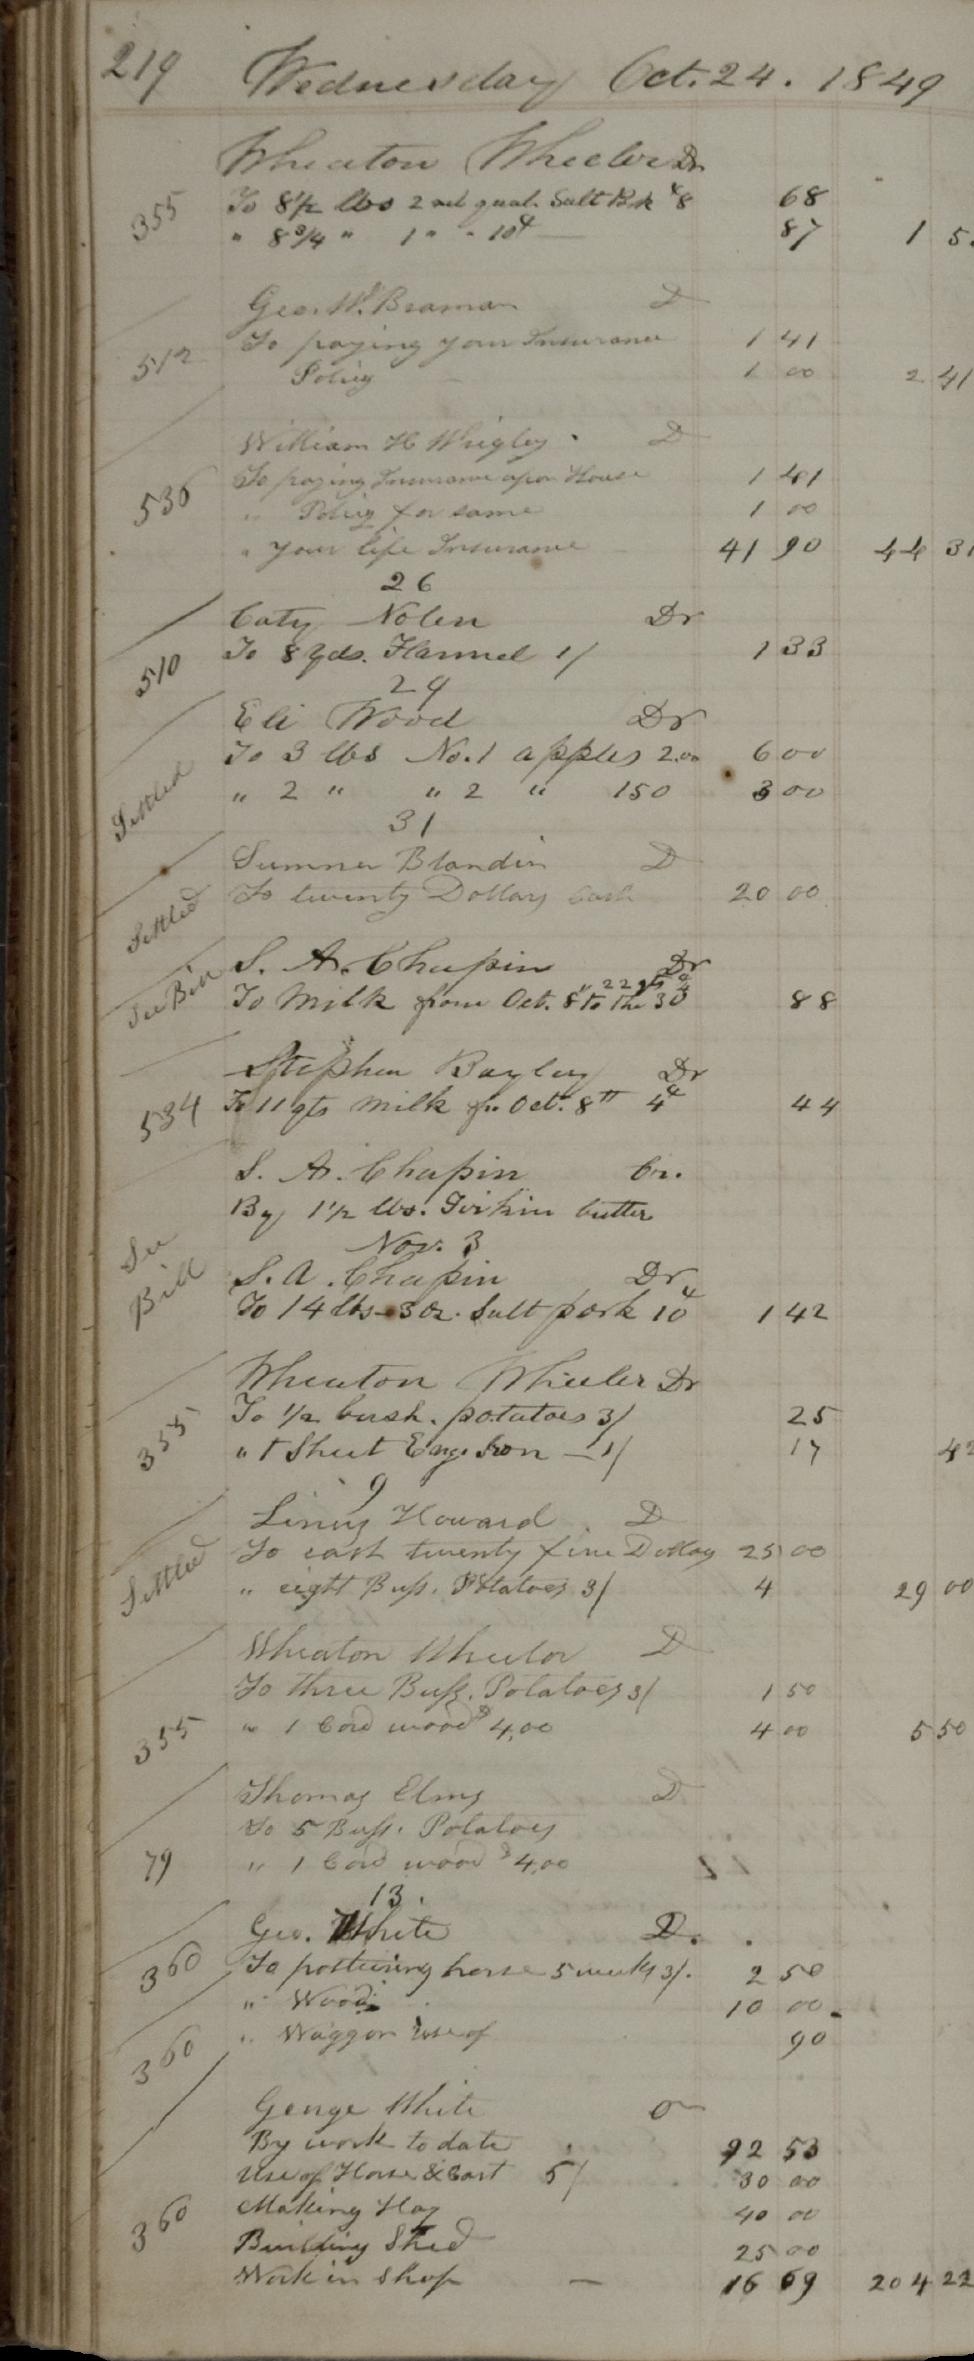 219 Wednesday Oct. 24. 1849
Wheaton Wheeler Dr
355 To 8 1/2 lbs 2nd qual. Salt Pk 8 68
" 8 3/4 " 1 " " 10 87 1 5
Geo. W. Braman D
To paying your Insurance 1 41
512 Policy 1 00 2 41
William H Wrigley D
To paying Insurance upon House 1 41
536 " Policy for same 1 00
" your life Insurance 41 90 44 31
26
Caty Nolen Dr
510 To 8 yds. Flannel 1/ 1 33
29
Eli Wood Dr
To 3 lbs No. 1 apples 2.00 6 00
Settled " 2 " " 2 " 150 3 00
31
Sumner Blandin D
Settled To twenty Dollars Cash 20 00
S. A. Chapin Dr
" 22 qts
See Bill To Milk from Oct. 8 to the 30 4 88
Stephen Bayley Dr
534 To 11 qts Milk fr. Oct. 8th 4 44
S. A. Chapin Cr.
By 1 1/2 lbs. Firkin butter
Nov. 3
See Bill S. A. Chapin Dr
To 14 lbs - 3 oz. Salt pork 10 1 42
Wheaton Wheeler Dr
To 1/2 bush. potatoes 3/ 25
355 " 1 Sheet Eng. Iron — 1/ 17 42
9
Linus Howard D
To cash twenty five Dollars 25 00
Settled " eight Buss. Potatoes 3/ 4 29 00
Wheaton Wheelor D
To three Buss. Potatoes 3/ 1 50
355 " 1 Cord wood 4,00 4 00 5 50
Thomas Elms D
To 5 Buss. Potatoes
79 " 1 Cord wood 4,00
13.
Geo. White D.
360 To pasturing horse 5 weeks 3/. 2 50
" Wood 10 00
360 " Waggon use of 90
George White Cr
By work to date 92 53
Use of Horse & Cart 5/ 30 00
360 Making Hay 40 00
Building Shed 25 00
Work in Shop — 16 69 204 22